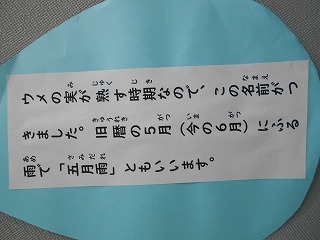 ウメの実が熟す時期なので、この名前がつ
きました。旧暦の5月（今の6月）にふる
雨で「五月雨」ともいいます。